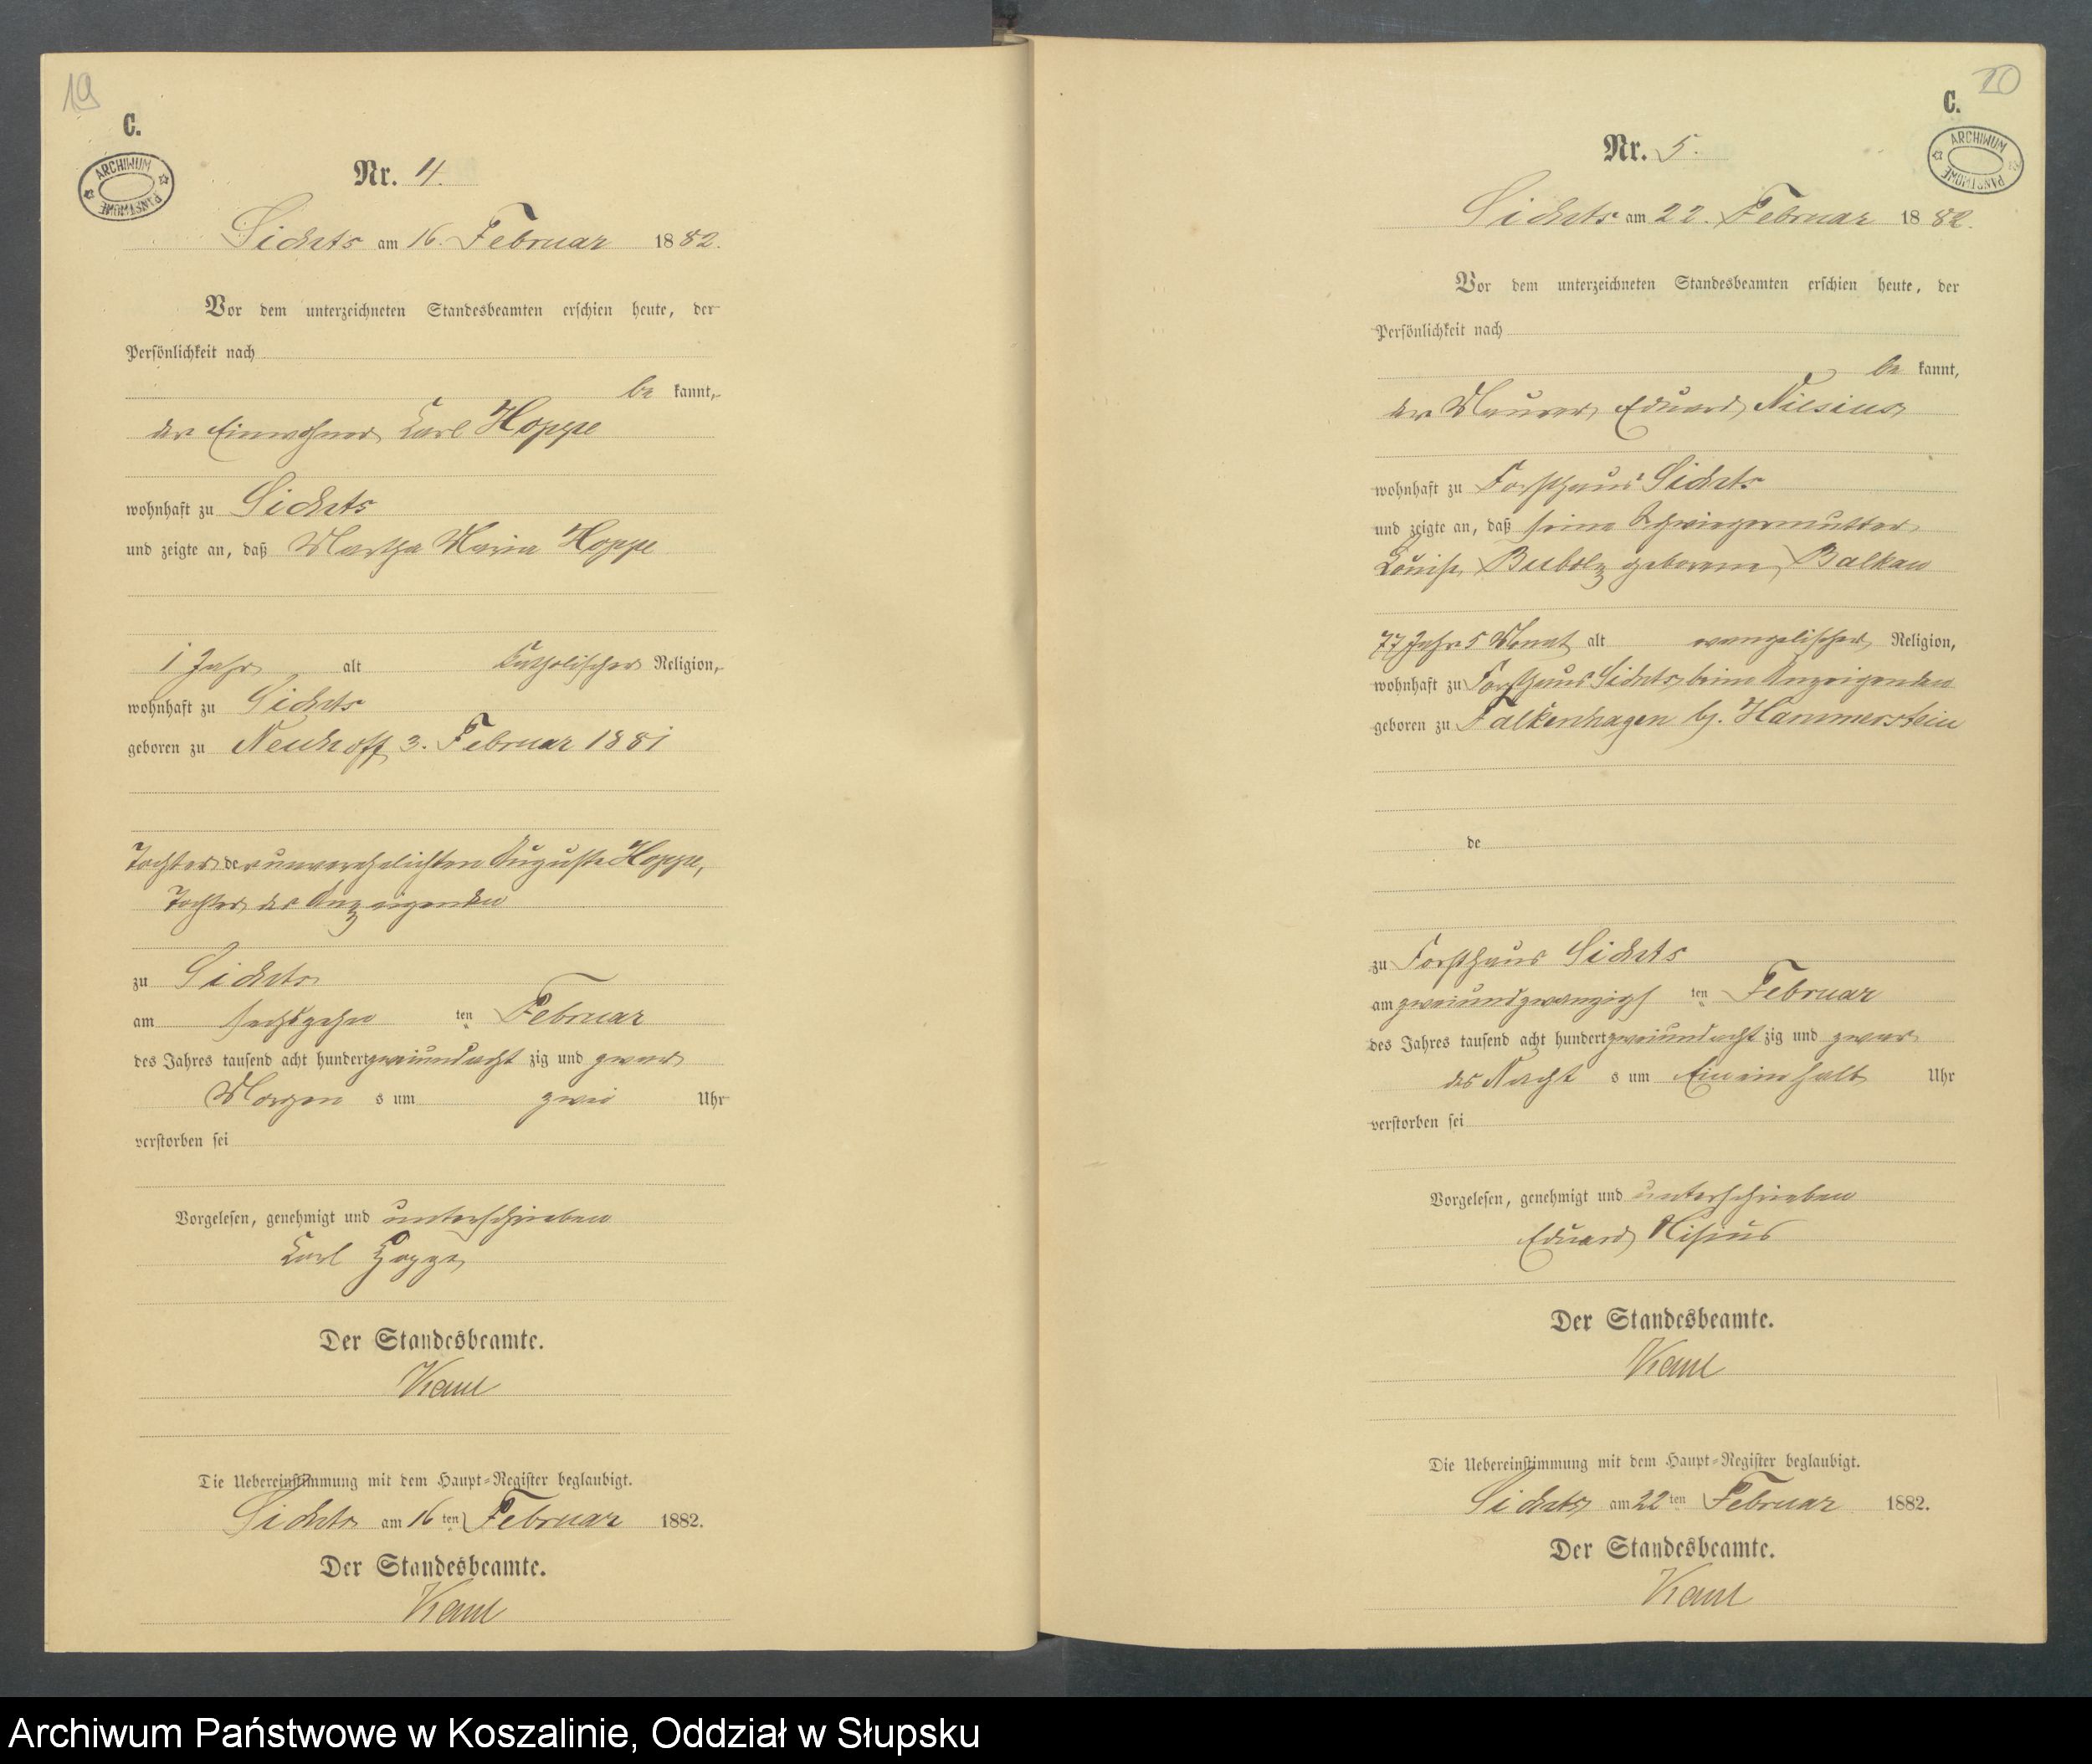 19
C.
ARCHIWUM PAŃSTWOWE
Nr. 4.
Sichts am 16. Februar 1882.
Vor dem unterzeichneten Standesbeamten erschien heute, der
Persönlichkeit nach
be kannt,
der Einwohner Carl Hoppe
wohnhaft zu Sichts
und zeigte an, daß Martha Maria Hoppe
1 Jahr alt katholischer Religion,
wohnhaft zu Sichts
geboren zu Neuhoff 3. Februar 1881
Tochter der unverehelichten Auguste Hoppe,
Tochter des Anzeigenden
zu Sichts
am sechszehn ten Februar
des Jahres tausend acht hundert zweiundacht zig und zwar
Morgen s um zwei Uhr
verstorben sei
Vorgelesen, genehmigt und unterschrieben
Carl Hoppe
Der Standesbeamte.
Kaul
Die Uebereinstimmung mit dem Haupt-Register beglaubigt.
Sichts am 16 ten Februar 1882.
Der Standesbeamte.
Kaul
20
C.
ARCHIWUM PAŃSTWOWE
Nr. 5.
Sichts am 22. Februar 1882.
Vor dem unterzeichneten Standesbeamten erschien heute, der
Persönlichkeit nach
be kannt,
der Maurer Eduard Niesius
wohnhaft zu Forsthaus Sichts
und zeigte an, daß seine Schwiegermutter
Louise Bubolz geborene Balkau
77 Jahr 5 Monat alt evangelischer Religion,
wohnhaft zu Forsthaus Sichts beim Anzeigenden
geboren zu Falkenhagen bj. Hammerstein
de
zu Forsthaus Sichts
am zweiundzwanzigs ten Februar
des Jahres tausend acht hundert zweiundacht zig und zwar
des Nacht s um Ein ein halb Uhr
verstorben sei
Vorgelesen, genehmigt und unterschrieben
Eduard Nisius
Der Standesbeamte.
Kaul
Die Uebereinstimmung mit dem Haupt-Register beglaubigt.
Sichts am 22 ten Februar 1882.
Der Standesbeamte.
Kaul
Archiwum Państwowe w Koszalinie, Oddział w Słupsku